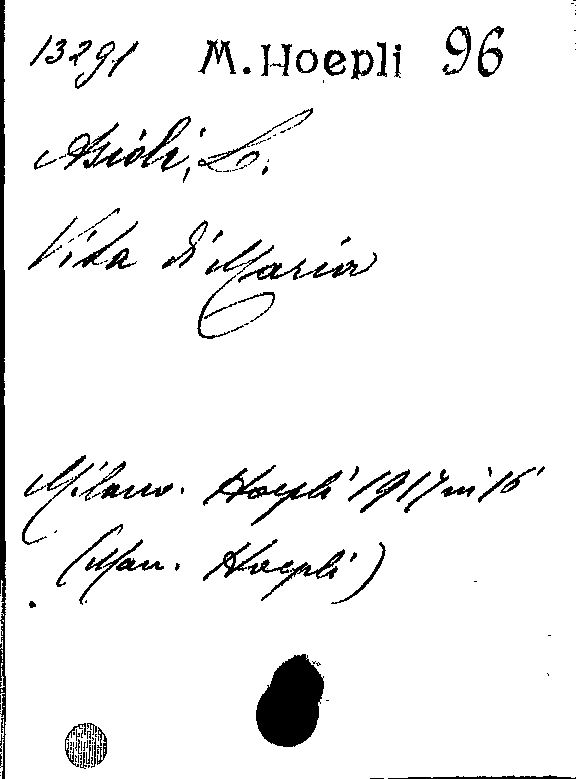 13291 M. Hoepli 96
Asioli, L.
Vita di Maria
Milano. Hoepli 1917 in 16°
(Man. Hoepli)